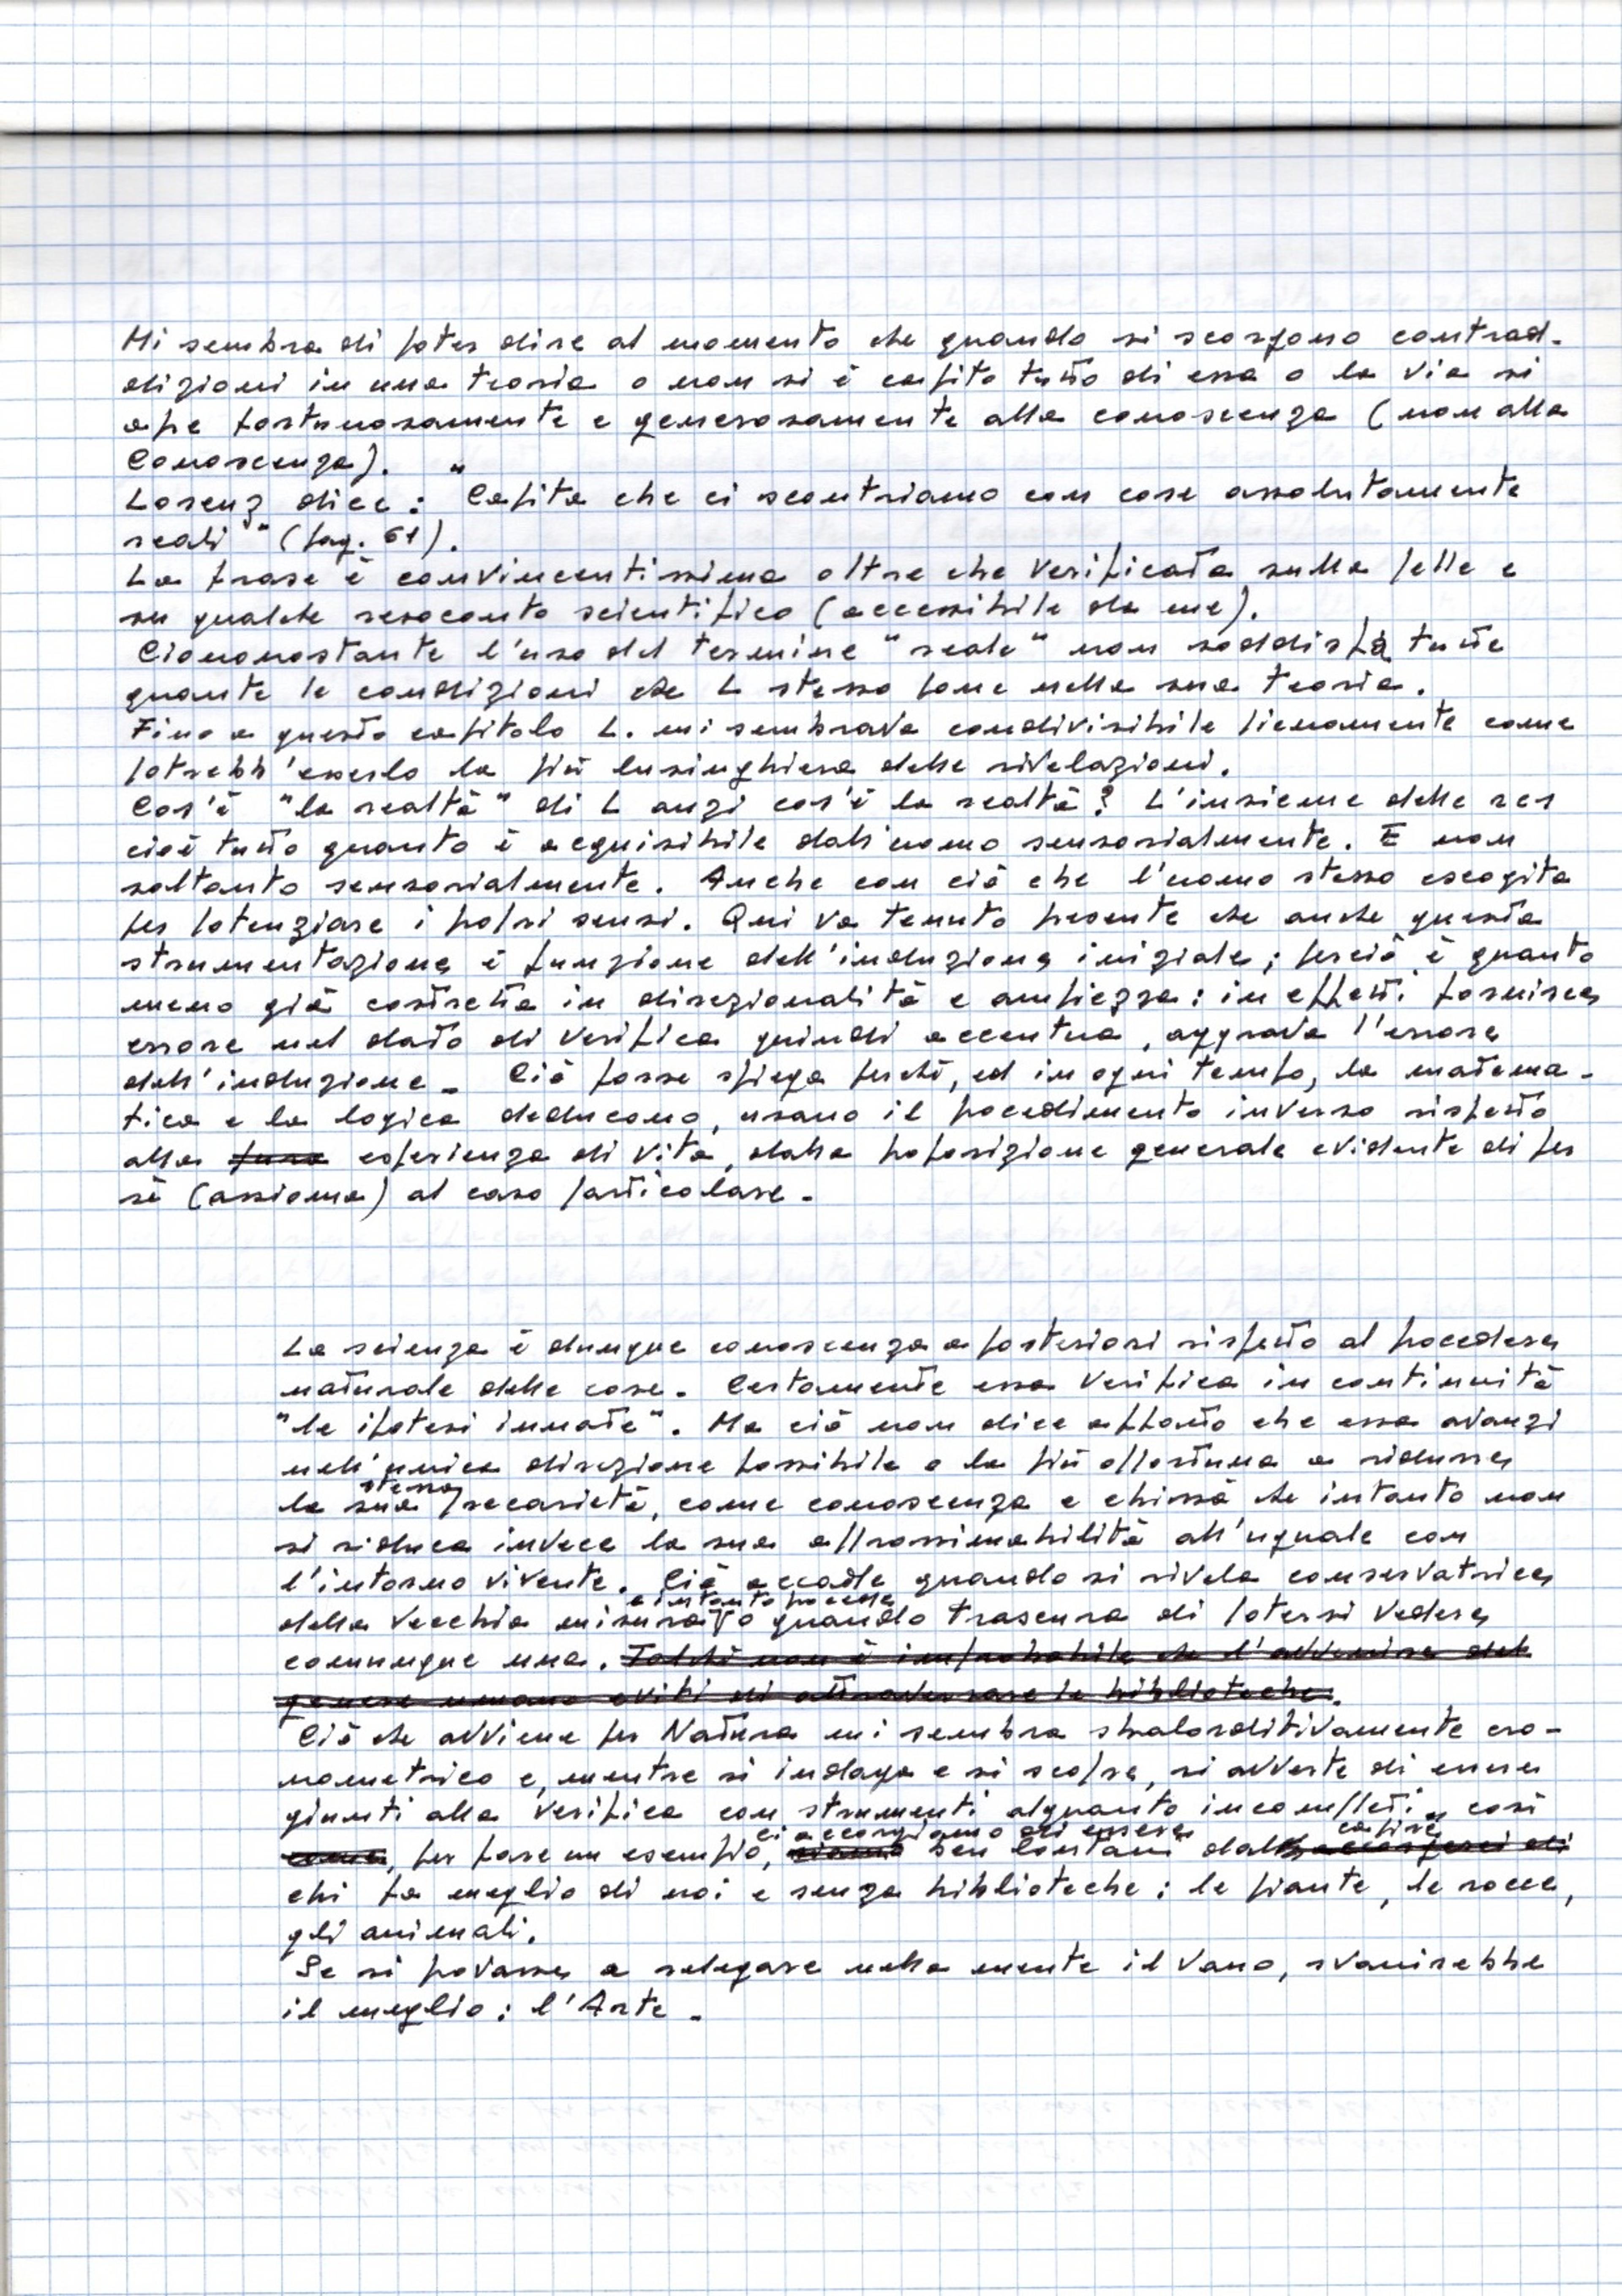 Mi sembra di poter dire al momento che quando si scorgono contrad-
dizioni in una teoria o non si è capito tutto di essa o la via si
apre fortunosamente e generosamente alla conoscenza (non alla
Conoscenza).
Lorenz dice: "Capita che ci scontriamo con cose assolutamente
reali" (pag. 61).
La frase è convincentissima oltre che verificata sulla pelle e
su qualche resoconto scientifico (accessibile da me).
Ciononostante l'uso del termine "reale" non soddisfa tutte
quante le condizioni che L stesso pone nella sua teoria.
Fino a questo capitolo L. mi sembrava condivisibile pienamente come
potrebb'esserlo la più lusinghiera delle rivelazioni.
Cos'è "la realtà" di L anzi cos'è la realtà? L'insieme delle res
cioè tutto quanto è acquisibile dall'uomo sensorialmente. E non
soltanto sensorialmente. Anche con ciò che l'uomo stesso escogita
per potenziare i propri sensi. Qui va tenuto presente che anche questa
strumentazione è funzione dell'induzione iniziale; perciò è quanto
meno già costretta in direzionalità e ampiezza: in effetti fornisce
errore nel dato di verifica quindi accentua, aggrava l'errore
dell'induzione. Ciò forse spiega perché, ed in ogni tempo, la matema-
tica e la logica deducono, usano il procedimento inverso rispetto
alla pura esperienza di vita, dalla proposizione generale evidente di per
sé (assioma) al caso particolare.
La scienza è dunque conoscenza a posteriori rispetto al procedere
naturale delle cose. Certamente essa verifica in continuità
"le ipotesi innate". Ma ciò non dice affatto che essa avanzi
nell'unica direzione possibile o la più opportuna a ridurre
stessa
la sua precarietà, come conoscenza e chissà che intanto non
si riduca invece la sua approssimabilità all'uguale con
l'intorno vivente. Ciò accade quando si rivela conservatrice
e intanto procede
della vecchia misura o quando trascura di potersi vedere
comunque una. Talché non è improbabile che l'avvenire del
genere umano eviti di attraversare le biblioteche.
Ciò che avviene per Natura mi sembra sbalorditivamente cro-
nometrico e, mentre si indaga e si scopre, si avverte di essere
giunti alla verifica con strumenti alquanto incompleti, così
ci accorgiamo di essere capire
come, per fare un esempio, siamo ben lontani dall'accorgerci di
chi fa meglio di noi e senza biblioteche: le piante, le rocce,
gli animali.
Se si provasse a relegare nella mente il vano, svanirebbe
il meglio: l'Arte.